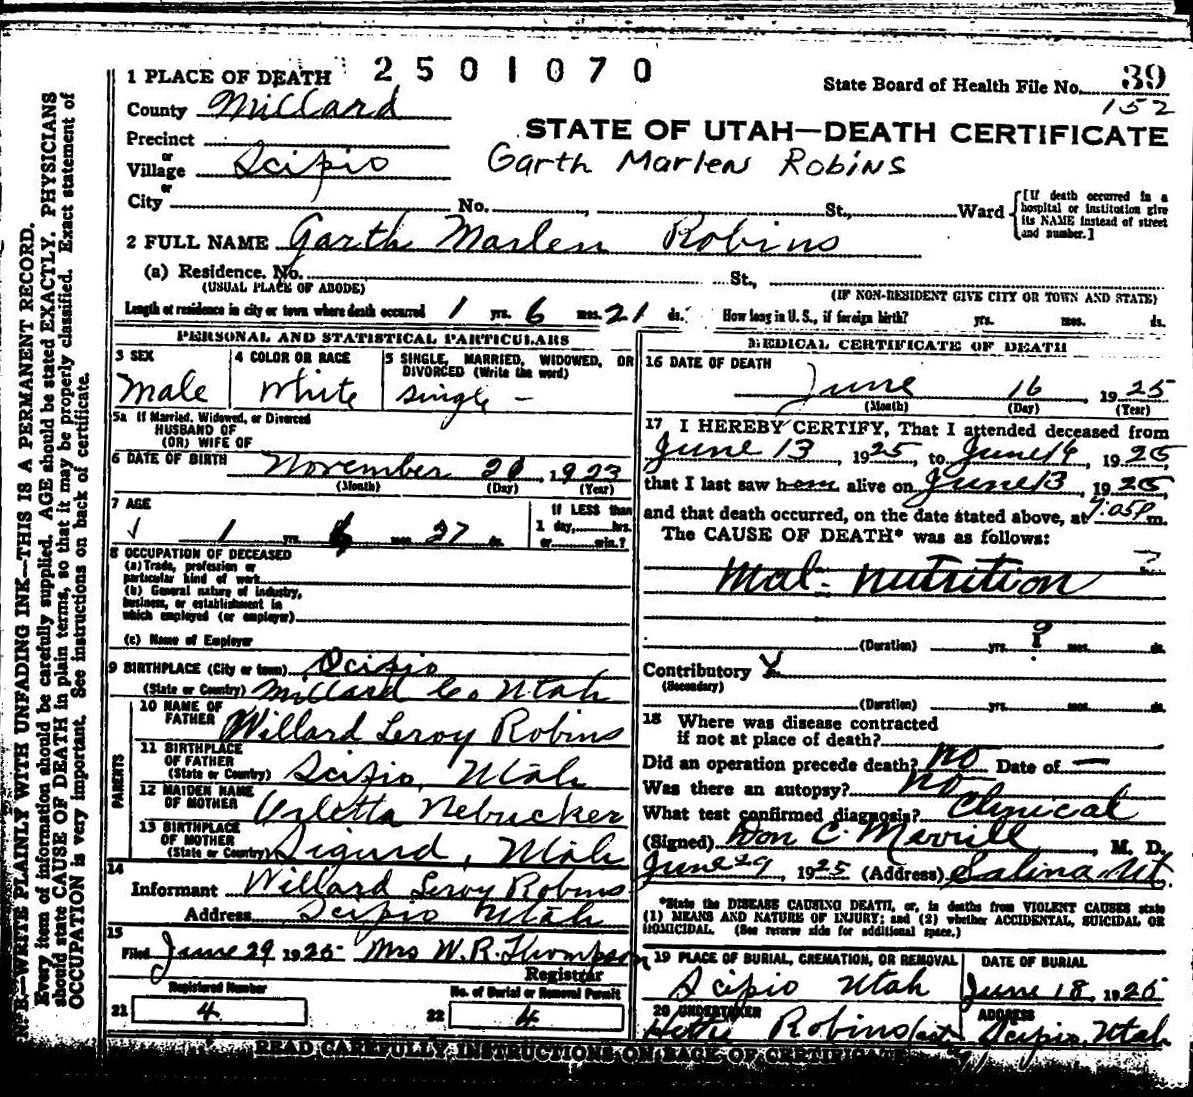 1 PLACE OF DEATH 2501070
State Board of Health File No. 39
152
County Millard
STATE OF UTAH—DEATH CERTIFICATE
Precinct
or
Village Scipio Garth Marlen Robins
or
City No. , St., Ward [If death occurred in a hospital or institution give its NAME instead of street and number.]
2 FULL NAME Garth Marlen Robins
(a) Residence. No. St.,
(USUAL PLACE OF ABODE) (IF NON-RESIDENT GIVE CITY OR TOWN AND STATE)
Length of residence in city or town where death occurred 1 yrs. 6 mos. 21 ds. How long in U. S., if foreign birth? yrs. mos. ds.
PERSONAL AND STATISTICAL PARTICULARS
3 SEX 4 COLOR OR RACE 5 SINGLE, MARRIED, WIDOWED, OR
DIVORCED (Write the word)
Male White Single -
5a If Married, Widowed, or Divorced
HUSBAND OF
(OR) WIFE OF
6 DATE OF BIRTH November 20, 1923
(Month) (Day) (Year)
7 AGE If LESS than
1 day, hrs.
1 yrs. 6 mos. 27 ds. or min.?
8 OCCUPATION OF DECEASED
(a) Trade, profession or
particular kind of work
(b) General nature of industry,
business, or establishment in
which employed (or employer)
(c) Name of Employer
9 BIRTHPLACE (City or town) Scipio
(State or Country) Millard Co Utah
PARENTS
10 NAME OF
FATHER Willard Leroy Robins
11 BIRTHPLACE
OF FATHER
(State or Country) Scipio, Utah
12 MAIDEN NAME
OF MOTHER Arletta Nebucker
13 BIRTHPLACE
OF MOTHER
(State or Country) Sigurd, Utah
14
Informant Willard Leroy Robins
Address Scipio Utah
15
Filed June 29 1925 Mrs W. R. Thompson
Registrar
Registered Number No. of Burial or Removal Permit
21 4 22 4
MEDICAL CERTIFICATE OF DEATH
16 DATE OF DEATH
June 16, 1925
(Month) (Day) (Year)
17 I HEREBY CERTIFY, That I attended deceased from
June 13, 1925, to June 14, 1925,
that I last saw him alive on June 13, 1925,
and that death occurred, on the date stated above, at 7:05P m.
The CAUSE OF DEATH* was as follows:
Mal-nutrition ?
(Duration) yrs. ? mos. ds.
Contributory X
(Secondary)
(Duration) yrs. mos. ds.
18 Where was disease contracted
if not at place of death?
Did an operation precede death? No Date of —
Was there an autopsy? No
What test confirmed diagnosis? Clinical
(Signed) Don C. Merrill, M. D.
June 29, 1925 (Address) Salina Ut.
*State the DISEASE CAUSING DEATH, or, in deaths from VIOLENT CAUSES state
(1) MEANS AND NATURE OF INJURY; and (2) whether ACCIDENTAL, SUICIDAL OR
HOMICIDAL. (See reverse side for additional space.)
19 PLACE OF BURIAL, CREMATION, OR REMOVAL DATE OF BURIAL
Scipio Utah June 18, 1925
20 UNDERTAKER ADDRESS
Hettie Robins Scipio, Utah
READ CAREFULLY INSTRUCTIONS ON BACK OF CERTIFICATE
N. B.—WRITE PLAINLY WITH UNFADING INK—THIS IS A PERMANENT RECORD.
Every item of information should be carefully supplied. AGE should be stated EXACTLY. PHYSICIANS
should state CAUSE OF DEATH in plain terms, so that it may be properly classified. Exact statement of
OCCUPATION is very important. See instructions on back of certificate.